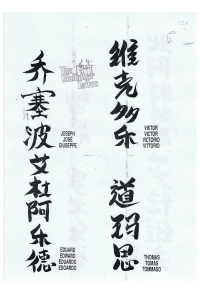 乔塞波
JOSEPH
JOSÉ
GIUSEPPE
艾杜阿尔德
EDUARD
EDWARD
EDUARDO
EDOARDO
维克多尔
VIKTOR
VICTOR
VICTORIO
VITTORIO
道玛思
THOMAS
TOMÁS
TOMMASO